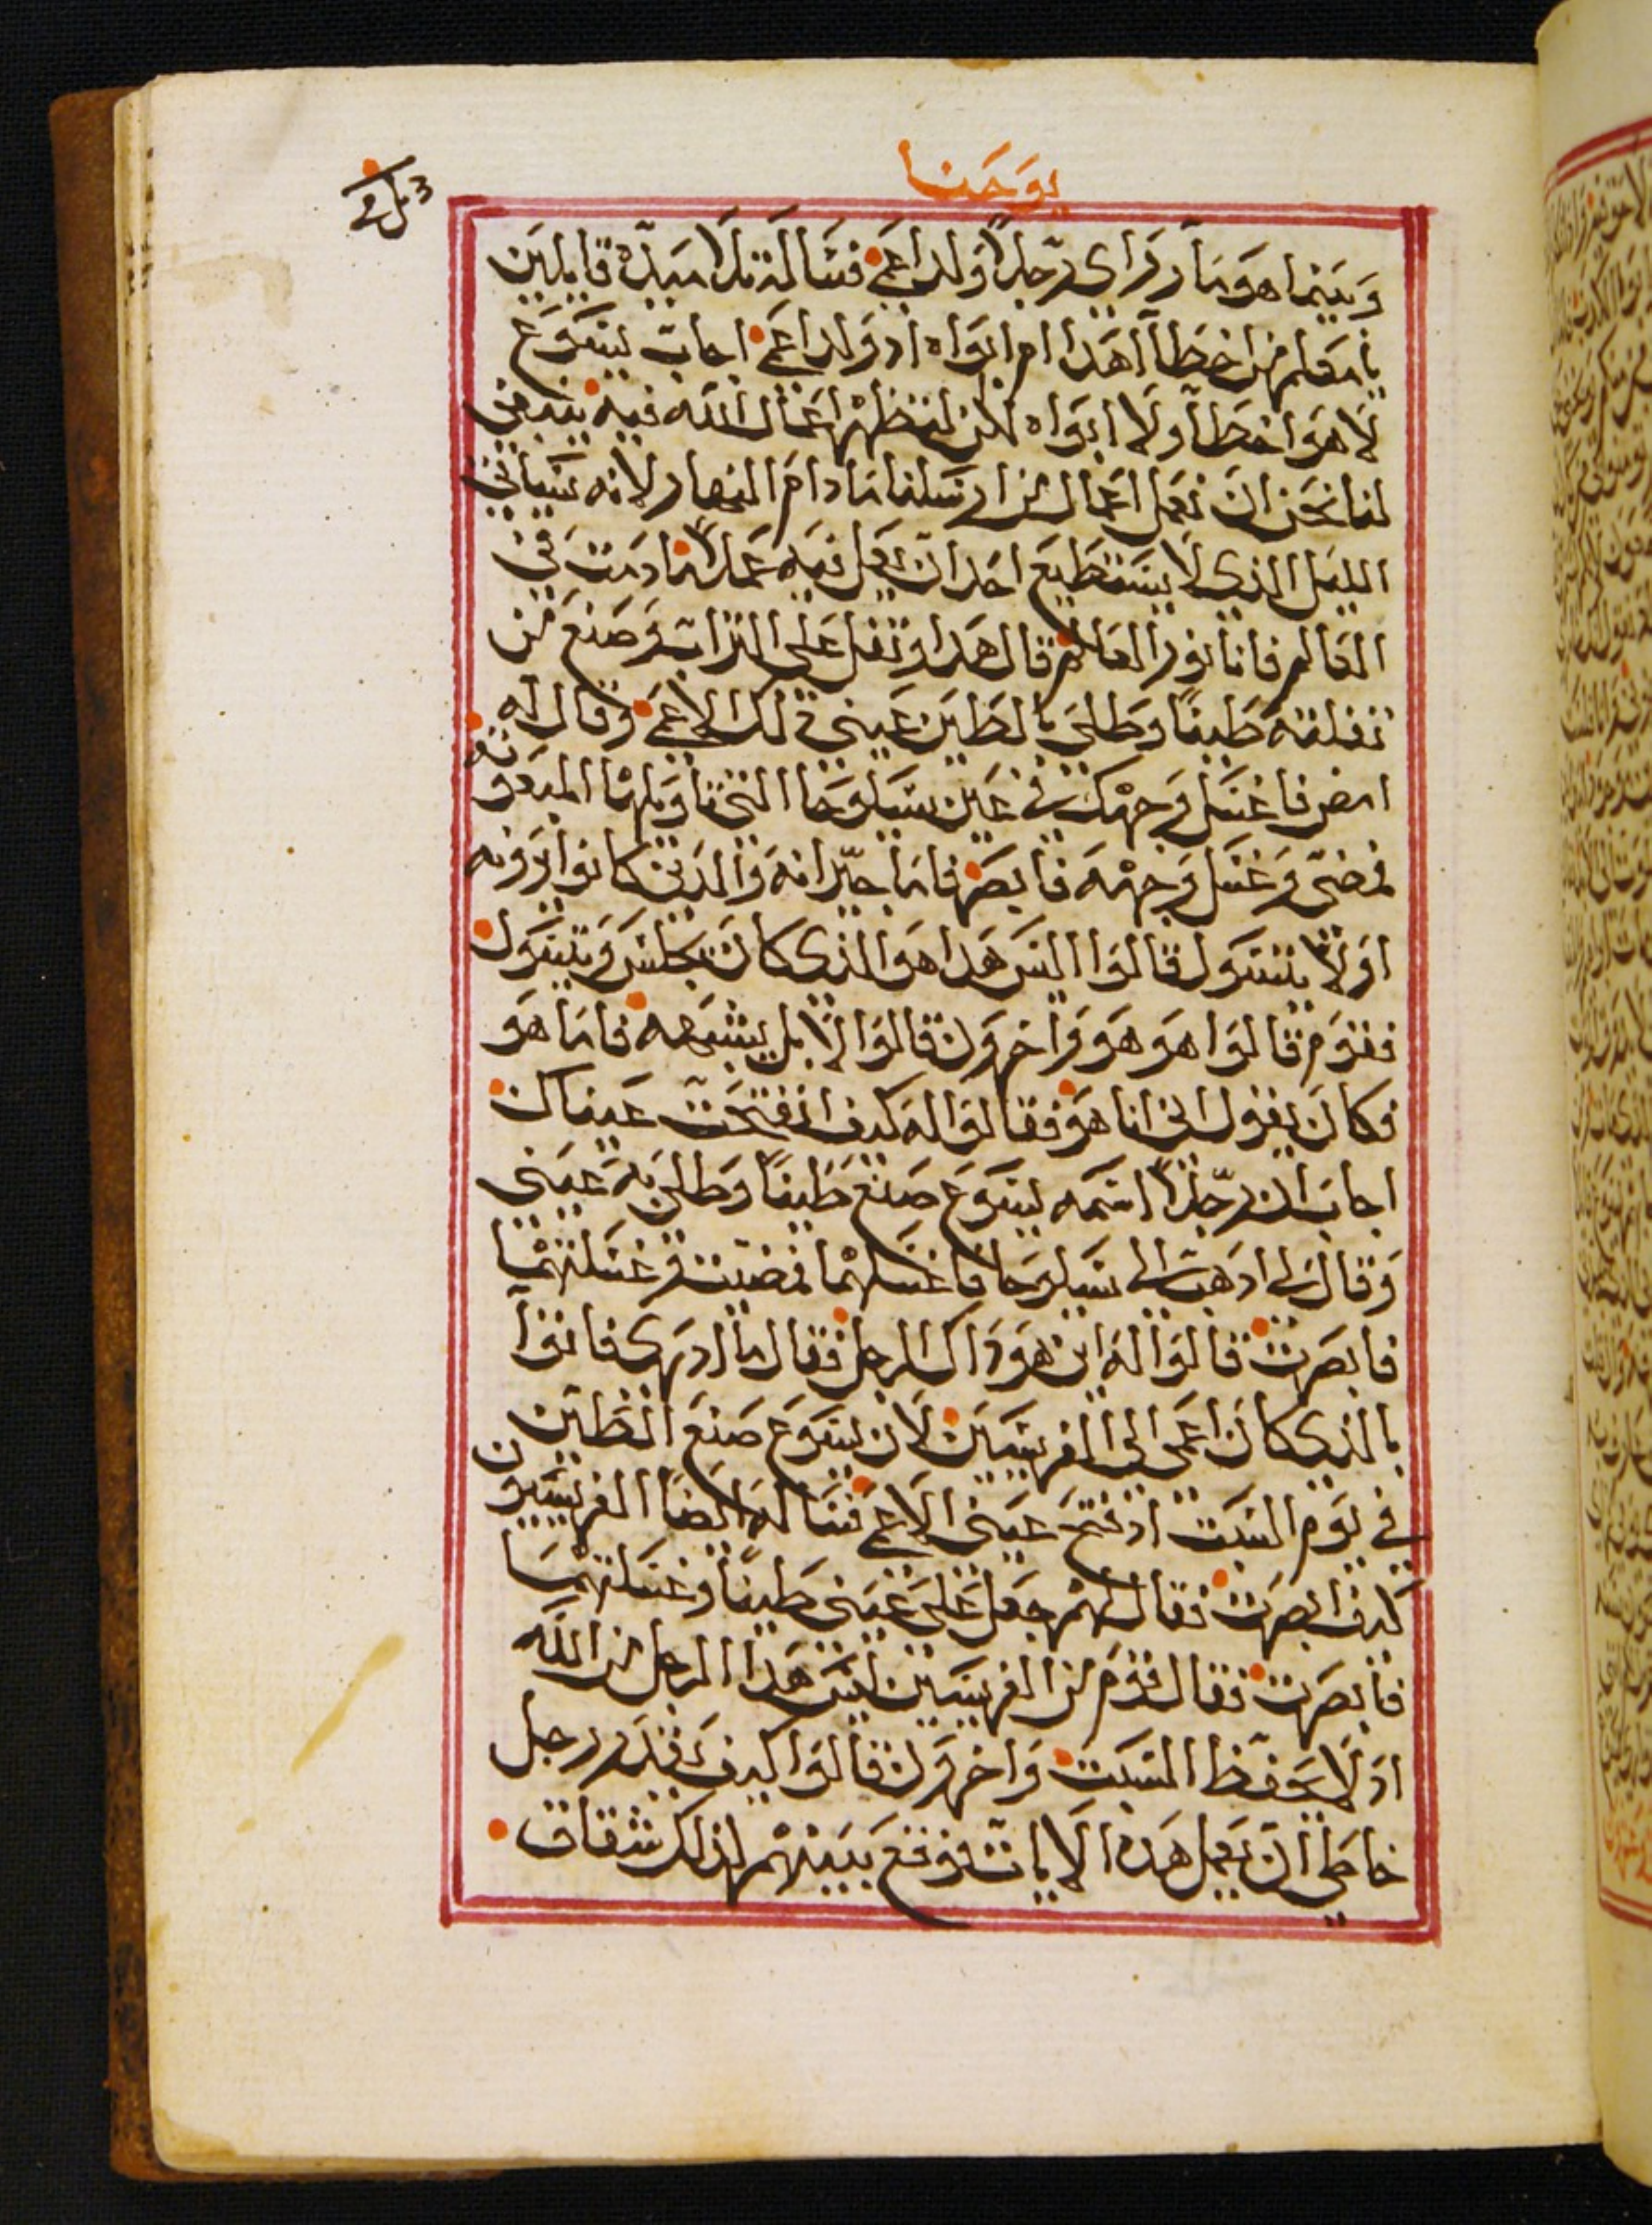 يوحنا
وبينما هو مار راى رجلاً ولد اعمى فسالته تلاميذه قايلين
يا معلم من اخطا اهدا ام ابواه اد ولد اعمى اجاب يسوع
لا هو اخطا ولا ابواه لكن لتظهر اعمال الله فيه ينبغي
لنا نحن ان نعمل اعمال من ارسلنا ما دام النهار لانه سياتي
الليل الذي لا يستطيع احد ان يعمل فيه عملاً ما دمت في
العالم فانا نور العالم قال هدا وتفل على التراب وصنع من
تفلته طينا وطلى بالطين عيني ذلك الاعمى وقال له
امض فاغسل وجهك في عين سيلوحا التي تاويلها المبعوثه
فمضى وغسل وجهه فابصر فاما جيرانه والذين كانوا يرونه
اولاً يتسول قالوا اليس هدا هو الذي كان يجلس ويتسول
فقوم قالوا هو هو واخرون قالوا لا بل يشبهه فاما هو
فكان يقول اني انا هو فقالوا له كيف انفتحت عيناك
اجاب ان رجلاً اسمه يسوع صنع طينا وطلى به عيني
وقال لي ادهب الى سيلوحا فاغسلهما فمضيت وغسلتهما
فابصرت قالوا له اين هو داك الرجل فقال ما ادري فاتوا
بالذي كان اعمى الى الفريسيين لان يسوع صنع الطين
في يوم السبت اد فتح عيني الاعمى فساله ايضا الفريسيون
كيف ابصرت فقال لهم جعل على عيني طينا وغسلتهما
فابصرت فقال قوم من الفريسيين ليس هدا الرجل من الله
اد لا يحفظ السبت واخرون قالوا كيف يقدر رجل
خاطي ان يعمل هده الايات فوقع بينهم لذلك شقاق